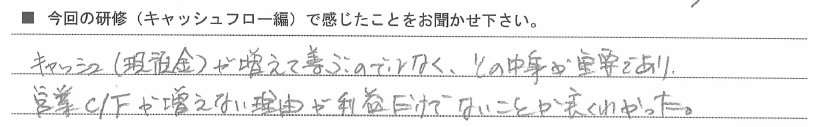 ■ 今回の研修（キャッシュフロー編）で感じたことをお聞かせ下さい。
キャッシュ（現預金）が増えて喜ぶのでなく、その中身が重要であり、
営業C/Fが増えない理由が利益だけでないことが良くわかった。